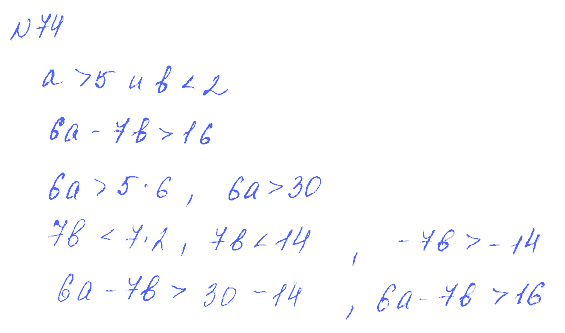 N 74
a > 5 и b < 2
6a - 7b > 16
6a > 5 · 6 , 6a > 30
7b < 7 · 2 , 7b < 14 , -7b > -14
6a - 7b > 30 - 14 , 6a - 7b > 16